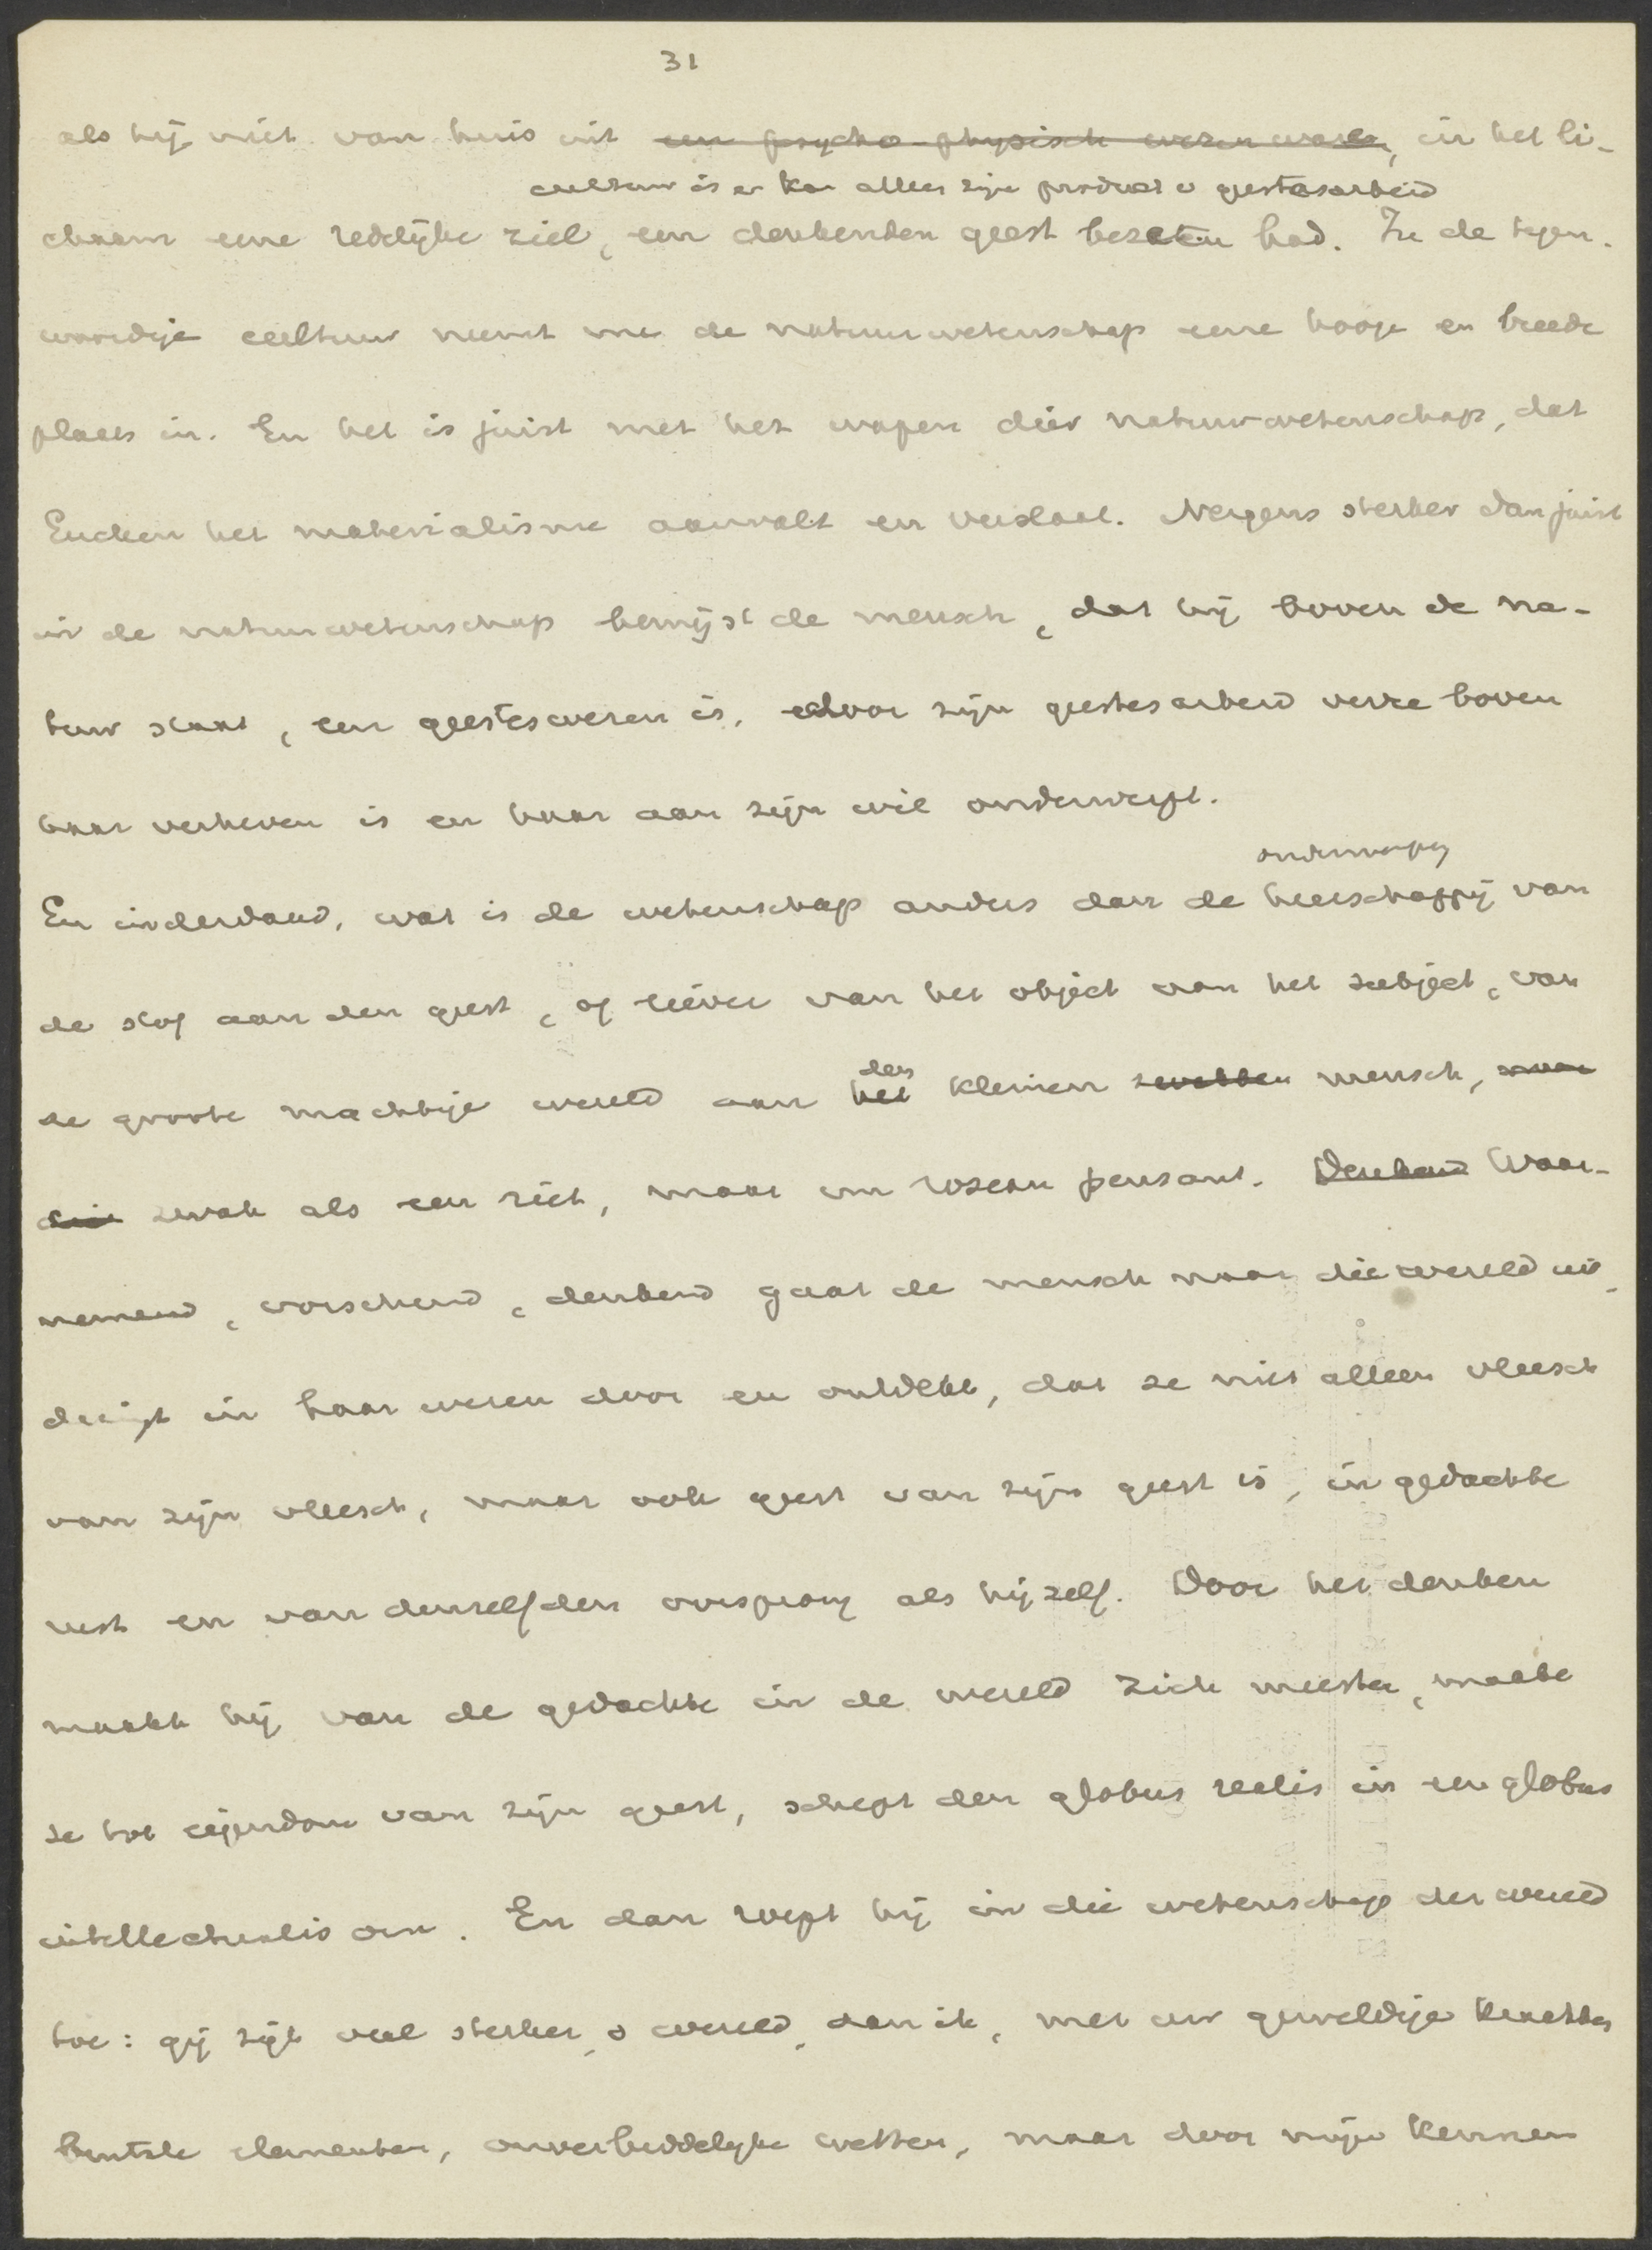 31
als hij niet van huis uit een psycho-physisch wezen ware, in het li-
cultuur is en kan alleen zijn product v geestesarbeid
chaam eene redelijke ziel, een denkenden geest bezeten had. In de tegen-
woordige cultuur neemt nu de natuurwetenschap eene hooge en breede
plaats in. En het is juist met het wapen dier natuurwetenschap, dat
Eucken het materialisme aanvalt en verslaat. Nergens sterker dan juist
in de natuurwetenschap bewijst de mensch, dat hij boven de na-
tuur staat, een geesteswezen is, door zijn geestesarbeid verre boven
haar verheven is en haar aan zijn wil onderwerpt.
onderwerping
En inderdaad, wat is de wetenschap anders dan de heerschappij van
de stof aan den geest, of liever van het object aan het subject, van
den
de groote machtige wereld aan het kleinen zwakken mensch, maar
die zwak als een riet, maar un roseau pensant. Denkend Waar-
nemend, vorschend, denkend gaat de mensch naar die wereld uit,
dringt in haar wezen door en ontdekt, dat ze niet alleen vleesch
van zijn vleesch, maar ook geest van zijn geest is, in gedachte
rust en van denzelfden oorsprong als hij zelf. Door het denken
maakt hij van de gedachte in de wereld zich meester, maakt
ze tot eigendom van zijn geest, schept den globus realis in een globus
intellectualis om. En dan roept hij in die wetenschap der wereld
toe: gij zijt veel sterker, o wereld, dan ik, met uw geweldige krachten
brutale elementen, onverbiddelijke wetten, maar door mijn kennen